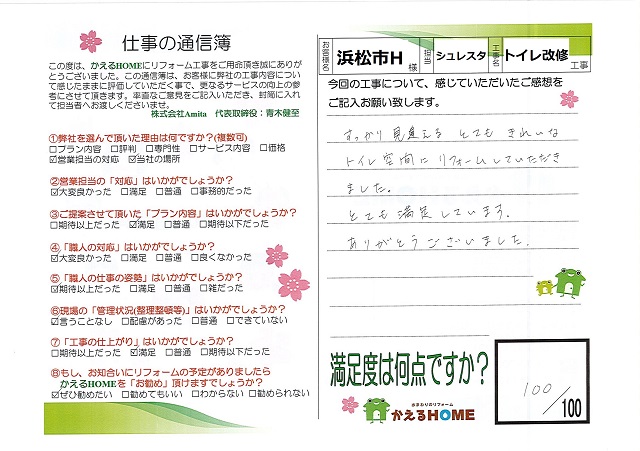 仕事の通信簿
この度は、かえるHOMEにリフォーム工事をご用命頂き誠にありが
とうございました。この通信簿は、お客様に弊社の工事内容につい
て感じたままに評価していただく事で、更なるサービスの向上の参
考にさせて頂きます。率直なご意見をご記入いただき、封筒に入れ
て担当者へお渡しくださいませ。
株式会社Amita 代表取締役：青木健至
①弊社を選んで頂いた理由は何ですか?(複数可)
□プラン内容 □評判 □専門性 □サービス内容 □価格
☑営業担当の対応 ☑当社の場所
②営業担当の「対応」はいかがでしょうか?
☑大変良かった □満足 □普通 □事務的だった
③ご提案させて頂いた「プラン内容」はいかがでしょうか?
□期待以上だった ☑満足 □普通 □期待以下だった
④、「職人の対応」はいかがでしょうか?
☑大変良かった □満足 □普通 □良くなかった
⑤「職人の仕事の姿勢」はいかがでしょうか?
☑期待以上だった □満足 □普通 □雑だった
⑥現場の「管理状況(整理整頓等)」はいかがでしょうか?
☑言うことなし □配慮があった □普通 □できていない
⑦「工事の仕上がり」はいかがでしょうか?
□期待以上だった ☑満足 □普通 □期待以下だった
⑧もし、お知合いにリフォームの予定がありましたら
かえるHOMEを「お勧め」頂けますでしょうか?
☑ぜひ勧めたい □勧めてもいい □わからない □勧められない
お客様名 浜松市H 様 担当 シュレスタ 工事名 トイレ改修 工事
今回の工事について、感じていただいたご感想を
ご記入お願い致します。
すっかり見違える とても きれいな
トイレ空間に リフォームしていただき
ました。
とても満足しています。
ありがとうございました。
満足度は何点ですか?
100/100
水まわりのリフォーム
かえるHOME